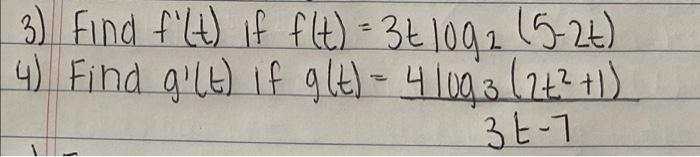 3) Find f'(t) if f(t) = 3t log₂ (5-2t)
4) Find g'(t) if g(t) = 4 log₃ (2t² +1)
3t-7